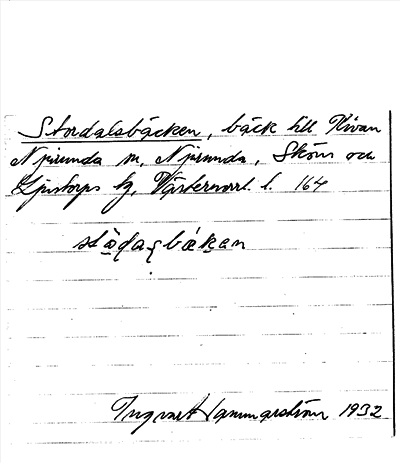 Stordalsbäcken, bäck till Hivan
Njurunda sn, Njurunda, Sköns och
Ljustorps tg, Västernorrl. l. 164
Ingvart Hammarström 1932